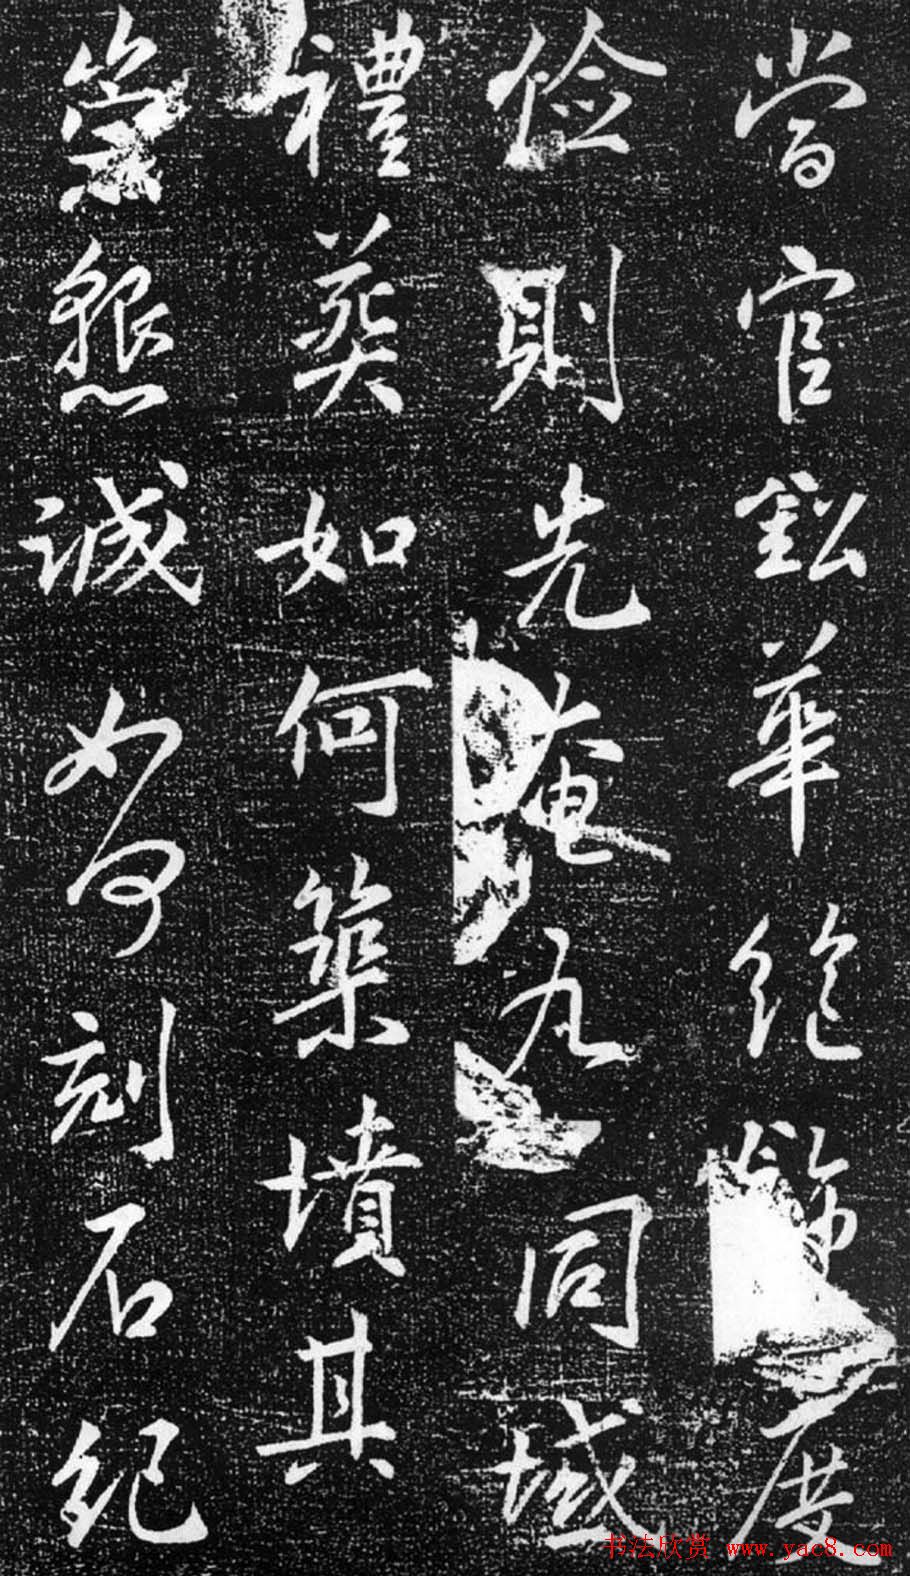 當官鈆華絶飾度
儉則先奄同域
禮葬如何築墳其
崇懇誠如何刻石紀
书法欣赏 www.yac8.com